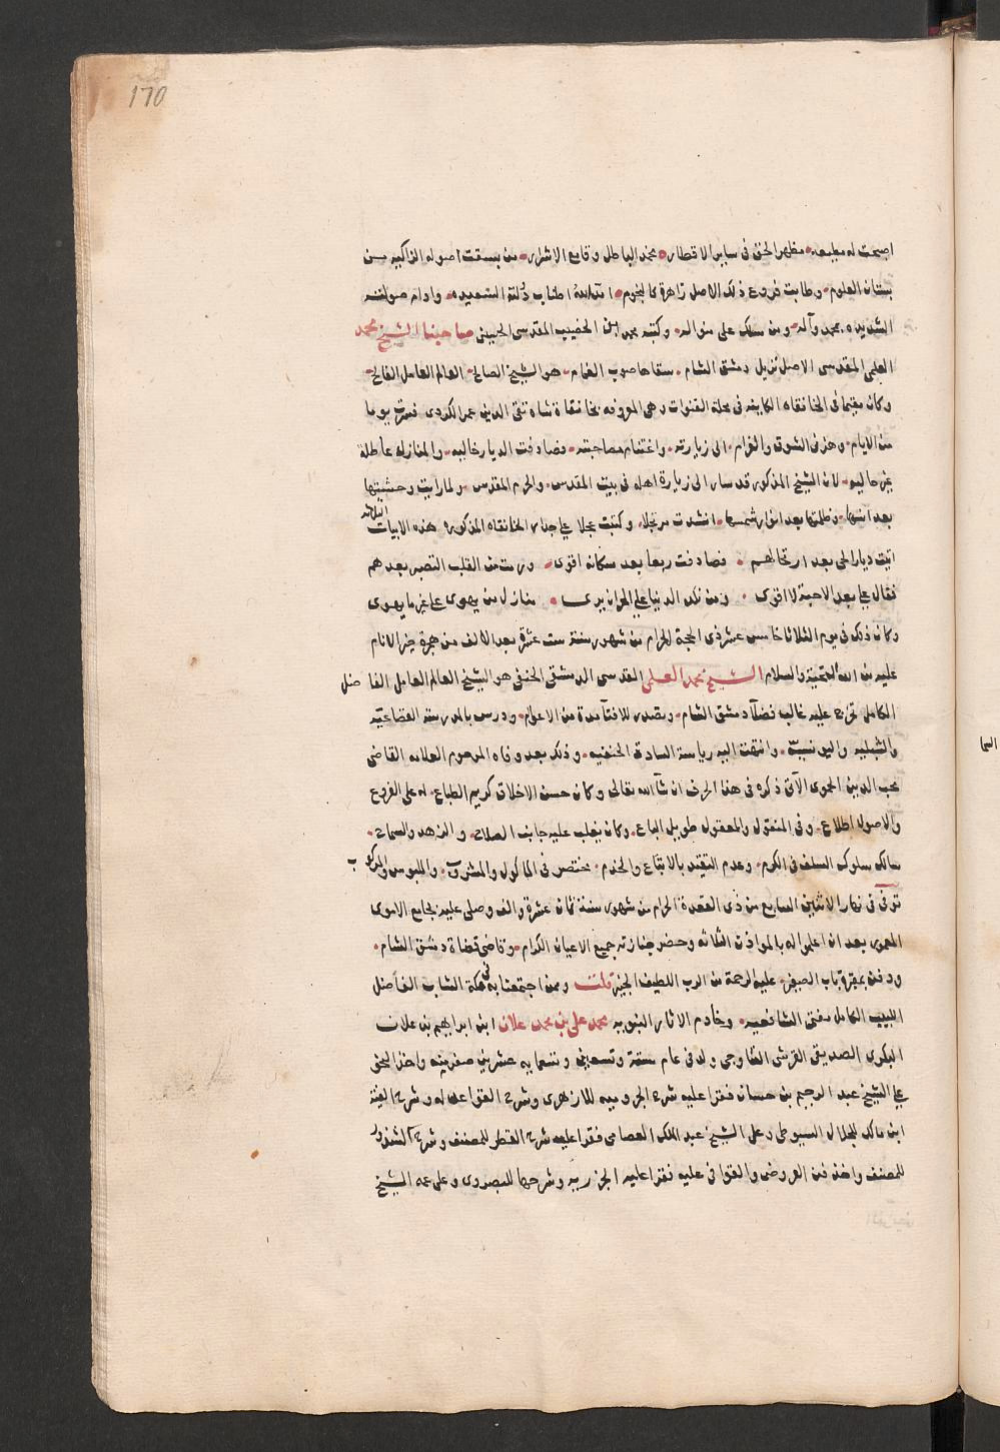 170
اصبحت له مطيعه مظهر الحق في ساير الاقطار مخمد الباطل وقامع الاشرار من بسقت اصوله الزاكيه من
بستان العلوم وطابت فروع ذلك الاصل زاهرة كالنجوم اطناب دولته السعيده وادام صولته
الشديده بمحمد وآله ومن سلك على منواله وكتبه محمد ابن الخطيب المقدسي الحسيني صاحبنا الشيخ محمد
العلمي المقدسي الاصل نزيل دمشق الشام سقاها صوب الغمام هو الشيخ الصالح العالم العامل الفالح
وكان مقيما في الخانقاه الكاينه في محلة القنوات وهي المعروفه بخانقاة شاه تقي الدين عمر الكردي فمررت يوما
من الايام وهزني الشوق والغرام الى زيارته واغتنام مصاحبته فصادفت الديار خاليه والمنازل عاطلة
غير حاليه لان الشيخ المذكور قد سار الى زيارة اهله في بيت المقدس والحرم المقدس ولما رايت وحشتها
بعد انسها وظلمتها بعد انوار شمسها انشدت مرتجلا وكتبت عجلا على جدار الخانقاه المذكوره هذه الابيات الثلاثه
اتيت ديار الحي بعد ارتحالهم فصادفت ربعا بعد سكانه اقوى ورمت من القلب التصبر بعدهم
فقال على بعد الاحبة لا اقوى ومن نكد الدنيا على الحر ان يرى منازل من يهوى على غير ما يهوى
وكان ذلك في يوم الثلاثا خامس عشر ذي الحجة الحرام من شهور سنة ست عشرة بعد الالف من هجرة خير الانام
عليه من الله التحية والسلام الشيخ محمد العلمي القدسي الدمشقي الحنفي هو الشيخ العالم العامل الفاضل
الكامل تخرج عليه غالب فضلآ دمشق الشام وتصدر للافتآ مدة من الاعوام ودرس بالمدرسة القضاعيه
والشبليه واليونسيه وانتهت اليه رياسة السادة الحنفيه وذلك بعد وفاه المرحوم العلامه القاضي
محب الدين الحموي الآتي ذكره في هذا الحرف ان شآ الله تعالى وكان حسن الاخلاق كريم الطباع له على الفروع
والاصول اطلاع وفي المنقول والمعقول طويل الباع وكان يغلب عليه جانب الصلاح والزهد والسماح
سالك سلوك السلف في الكرم وعدم التقيد بالاتباع والخدم مختصر في الماكول والمشروب والملبوس والمركوب
توفي في نهار الاثنين السابع من ذي القعدة الحرام من شهور سنة ثمان عشرة والف وصلي عليه بجامع الاموي
المعمور بعد ان اعلموا له بالمواذن الثلاثه وحضر جنازته جميع الاعيان الكرام وقاضي قضاة دمشق الشام
ودفن بمقبرة باب الصغير عليه الرحمة من الرب اللطيف الخبير قلت وممن اجتمعنا به في مكة الشاب الفاضل
اللبيب الكامل مفتي الشافعيه وخادم الاثار النبويه محمد علي بن محمد علان ابن ابراهيم بن علان
البكري الصديقي القرشي ولد في عام ستة وتسعين وتسعمايه عشرين صفر منه واخذ النحو
على الشيخ عبد الرحيم بن حسان فقرا عليه شرح الجروميه للازهري وشرح القواعد له وشرح الفية
ابن مالك للجلال السيوطي وعلى الشيخ عبد الملك العصامي فقرا عليه شرح القطر للمصنف وشرح الشذور
للمصنف واخذ فن العروض والقوافي عليه فقرا عليه الخزرجيه وشرحها للبصروي وعلى عمه الشيخ